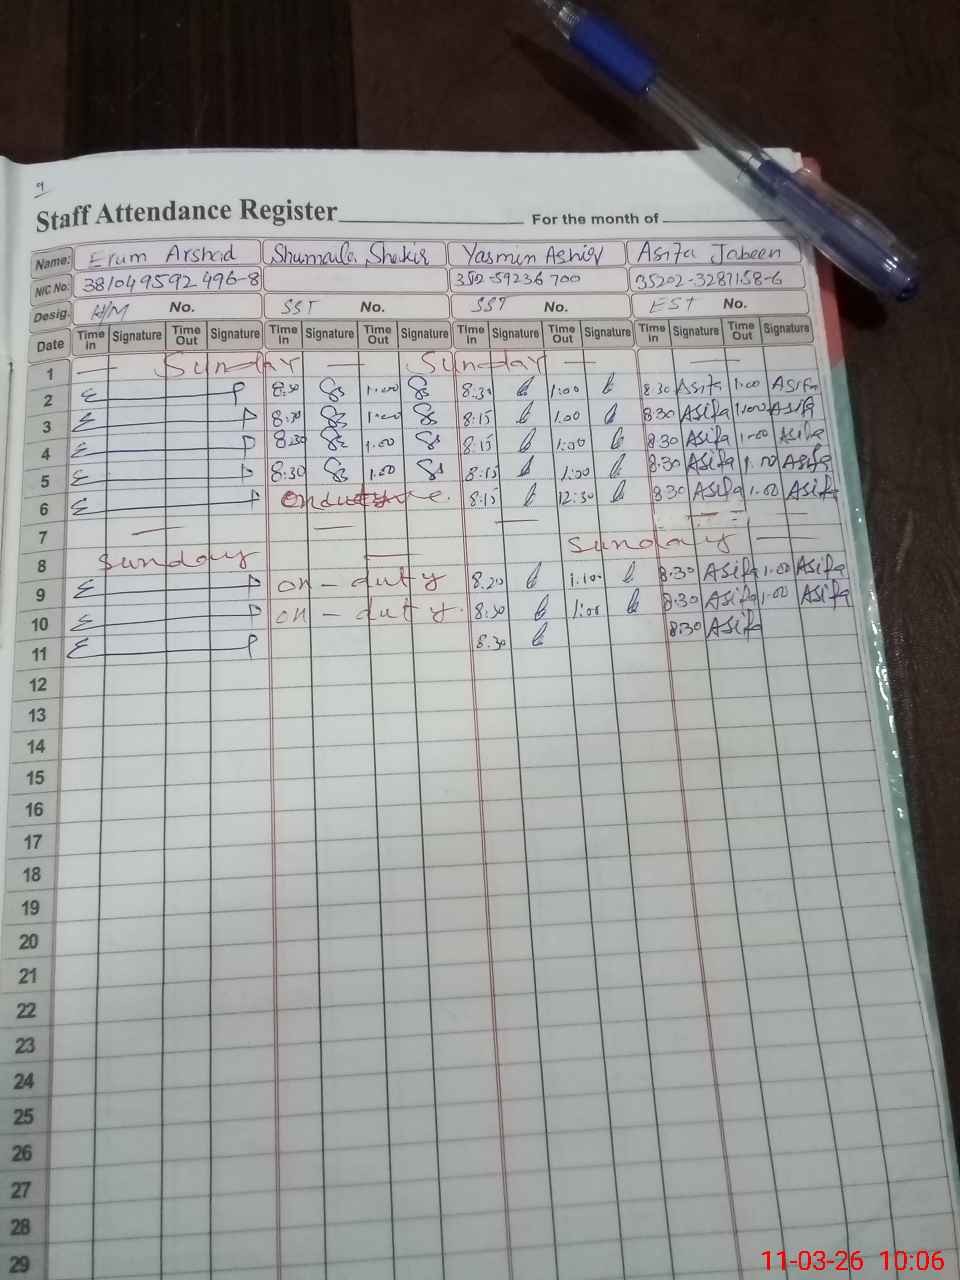 9
Staff Attendance Register For the month of
Name: Erum Arshad Shumaila Shakir Yasmin Ashiq Asifa Jabeen
N/C No: 381049592496-8 352-59236700 35202-3287158-6
Desig. H/M No. SST No. SST No. EST No.
Date Time In Signature Time Out Signature Time In Signature Time Out Signature Time In Signature Time Out Signature Time In Signature Time Out Signature
1 — Sunday — Sunday — —
2 8:30 1:00 8:30 1:00 8:30 Asifa 1:00 Asifa
3 8:30 1:00 8:15 1:00 8:30 Asifa 1:00 Asifa
4 8:30 1:00 8:15 1:00 8:30 Asifa 1:00 Asifa
5 8:30 1:00 8:15 1:00 8:30 Asifa 1:00 Asifa
6 8:15 12:30 8:30 Asifa 1:00 Asifa
7 — — — —
8 Sunday — Sunday —
9 on-duty 8:20 1:100 8:30 Asifa 1:00 Asifa
10 on-duty 8:30 1:00 8:30 Asifa 1:00 Asifa
11 8:30 8:30 Asifa
12
13
14
15
16
17
18
19
20
21
22
23
24
25
26
27
28
29
11-03-26 10:06